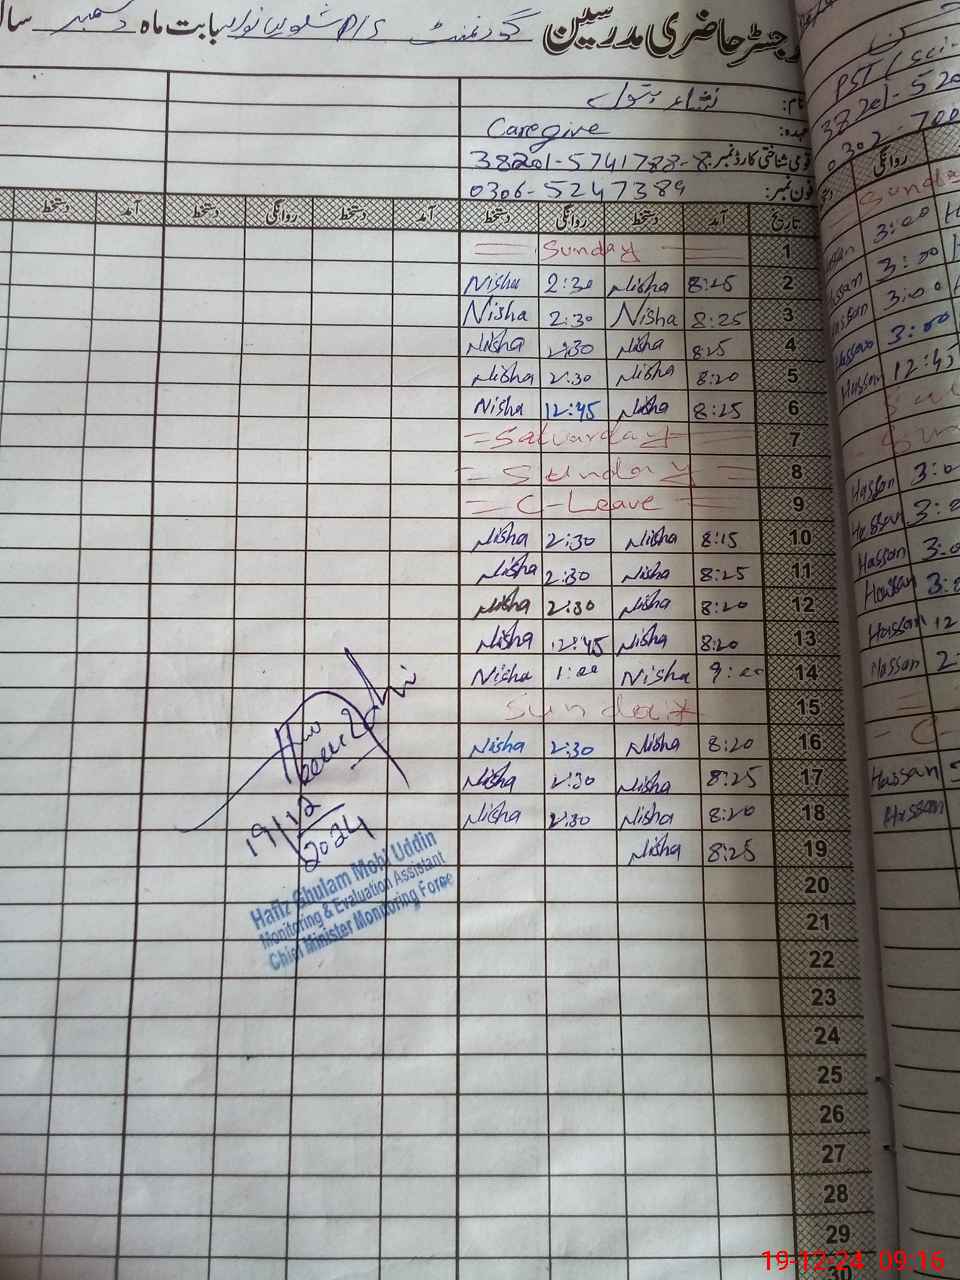 رجسٹر حاضری مدرسین گورنمنٹ P/S بابت ماہ دسمبر سال
نام: نشاء بتول
عہدہ: Caregive
قومی شناختی کارڈ نمبر: 38201-5741788-8
فون نمبر: 0306-5247389
تاریخ آمد دستخط روانگی دستخط آمد دستخط روانگی دستخط آمد دستخط
1 Sunday
2 8:25 Nisha 2:30 Nisha
3 8:25 Nisha 2:30 Nisha
4 8:25 Nisha 2:30 Nisha
5 8:20 Nisha 2:30 Nisha
6 8:25 Nisha 12:45 Nisha
7 =Satuarday=
8 = Sunday =
9 = C-Leave =
10 8:15 Nisha 2:30 Nisha
11 8:25 Nisha 2:30 Nisha
12 8:20 Nisha 2:30 Nisha
13 8:20 Nisha 12:45 Nisha
14 9:00 Nisha 1:00 Nisha
15 Sunday
16 8:20 Nisha 2:30 Nisha
17 8:25 Nisha 2:30 Nisha
18 8:20 Nisha 2:30 Nisha
19 8:25 Nisha
20
21
22
23
24
25
26
27
28
29
30
19/12/2024
Hafiz Ghulam Mohi Uddin
Monitoring & Evaluation Assistant
Chief Minister Monitoring Force
PST (Sci-
38201-520
0302-700
روانگی
Sunda
Hassan 3:00
Hassan 3:00
Hassan 3:00
Hassan 3:00
Hassan 12:45
Sun
Hassan 3:0
Hassan 3:0
Hassan 3:0
Hassan 3:0
Hassan 12
Hassan 2:
- C-
Hassan
Hassan
19-12-24 09:16